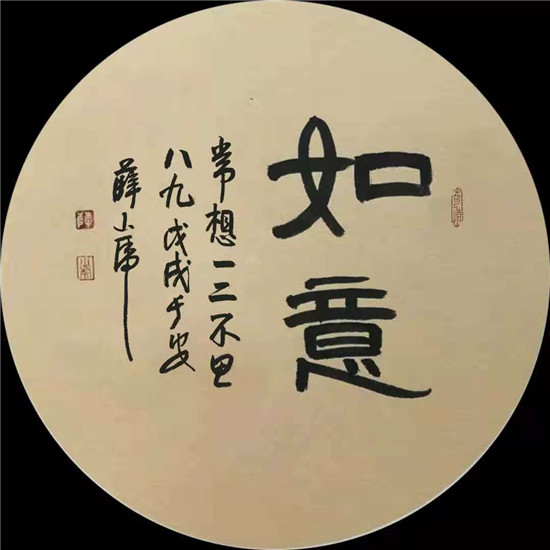 如意
常想一二不思
八九戊戌于安
薛小虎